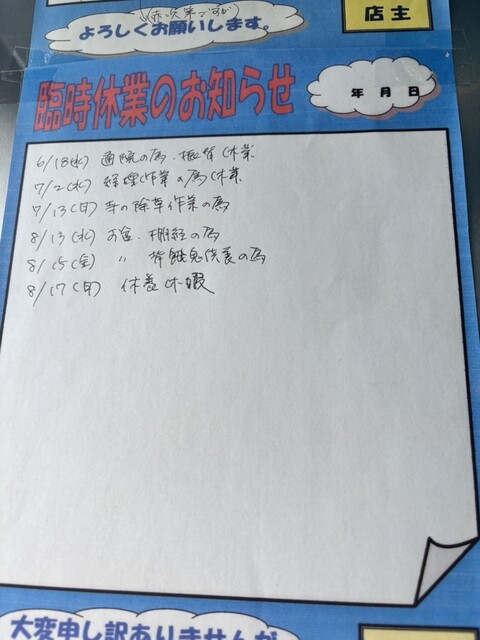 (赤、欠業ですが)
よろしくお願いします。
店主
臨時休業のお知らせ
年 月 日
6/18(水) 通院の為、振替休業
7/2(水) 経理作業の為休業
7/13(日) 寺の除草作業の為
8/13(水) お盆、棚経の為
8/15(金) 〃 施餓鬼供養の為
8/17(日) 休養休暇
大変申し訳ありませんが